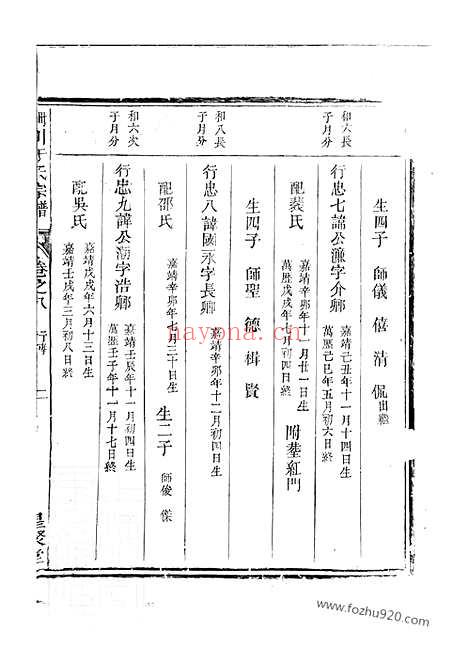 生四子 師儀 僖 清 侃出繼
和六長子月分
行忠七諱公濂字介卿 嘉靖己丑年十一月十四日生 萬歷己巳年五月初六日終
配裘氏 嘉靖辛卯年十一月廿一日生 萬歷戊戌年 附塟紅門
生四子 師聖 德 楫 賢
和八長子月分
行忠八諱國永字長卿 嘉靖辛卯年十二月初四日生
配邵氏 嘉靖辛卯年三月三十日生 生二子 師俊 傑
和六次子月分
行忠九諱公 字浩卿 嘉靖壬辰年十一月初四日生 萬歷壬子年十一月十七日終
配吳氏 嘉靖戊戌年六月十三日生 嘉靖壬戌年三月初八日終
川于氏宗譜 卷之八 行傳 聚堂
hayona.cn
www.fozhu920.com